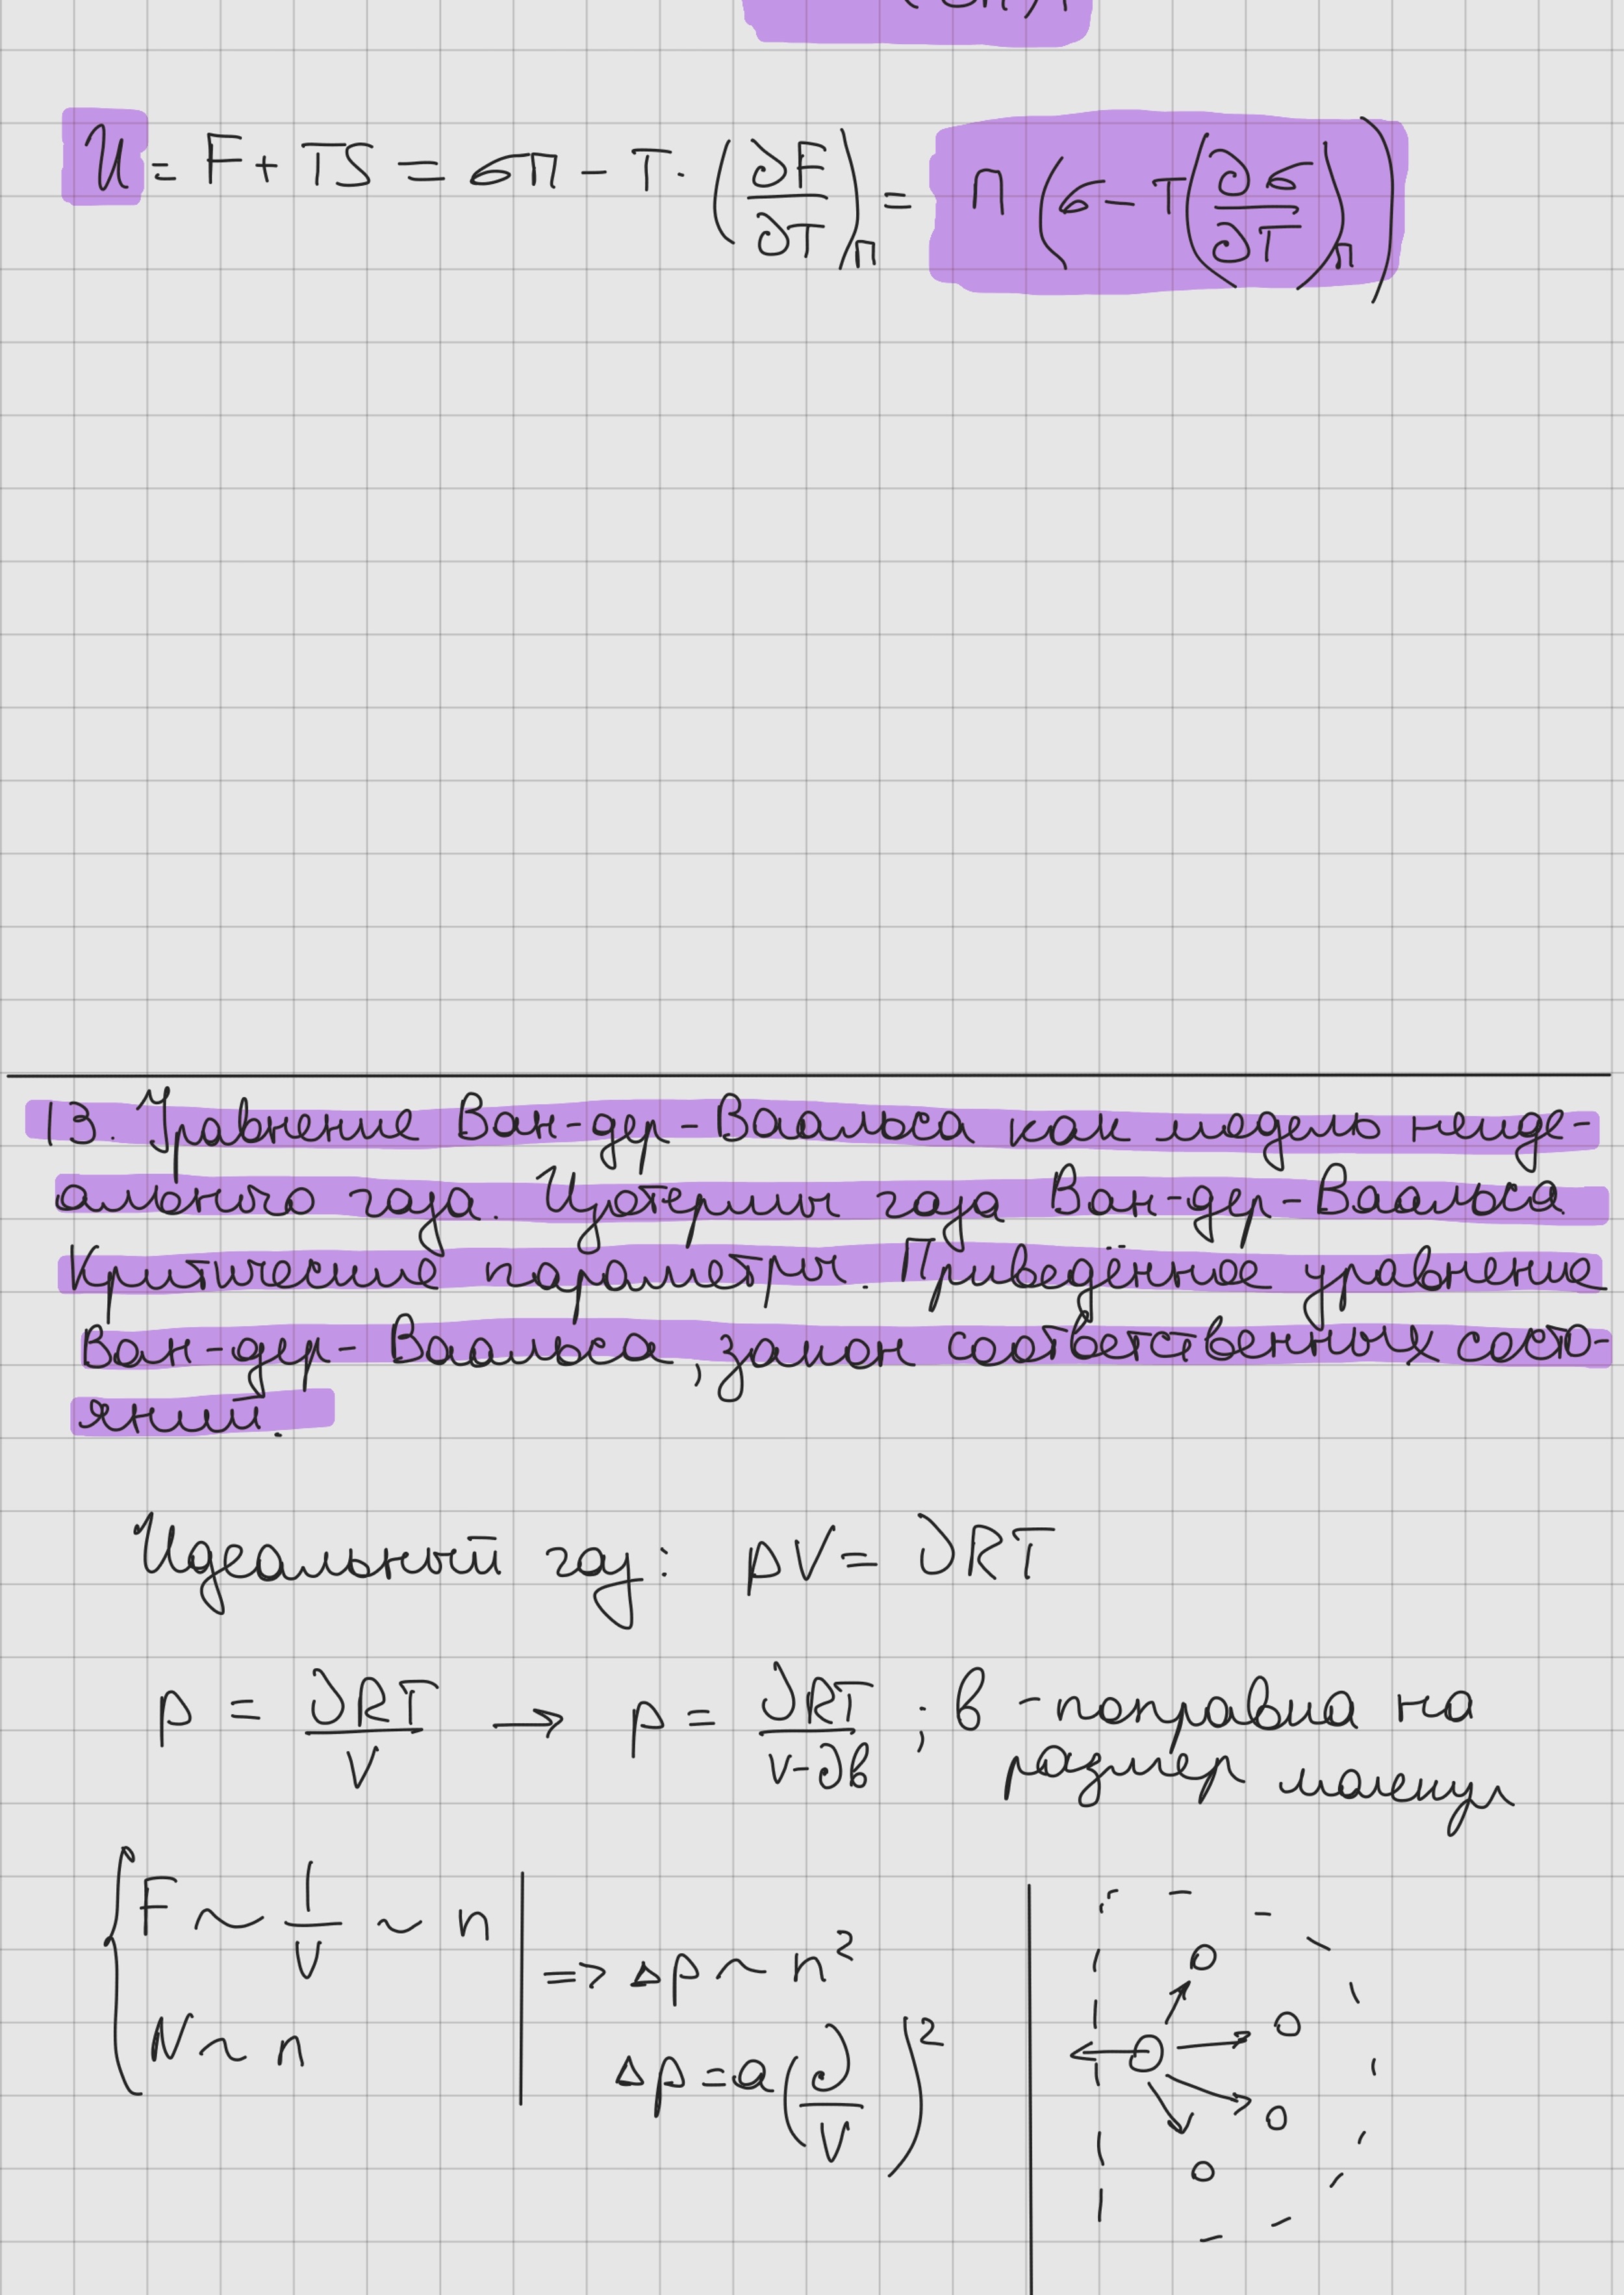 U = F + TS = σП − T · (∂F/∂T)п = П(σ − T(∂σ/∂T)п)
13. Уравнение Ван-дер-Ваальса как модель неиде-
ального газа. Изотермы газа Ван-дер-Ваальса.
Критические параметры. Приведённое уравнение
Ван-дер-Ваальса, закон соответственных состо-
яний.
Идеальный газ: pV = νRT
p = νRT/V → p = νRT/(V−νb) ; b - поправка на
размер молекул
F ~ 1/V ~ n
N ~ n
=> Δp ~ n²
Δp = a(ν/V)²